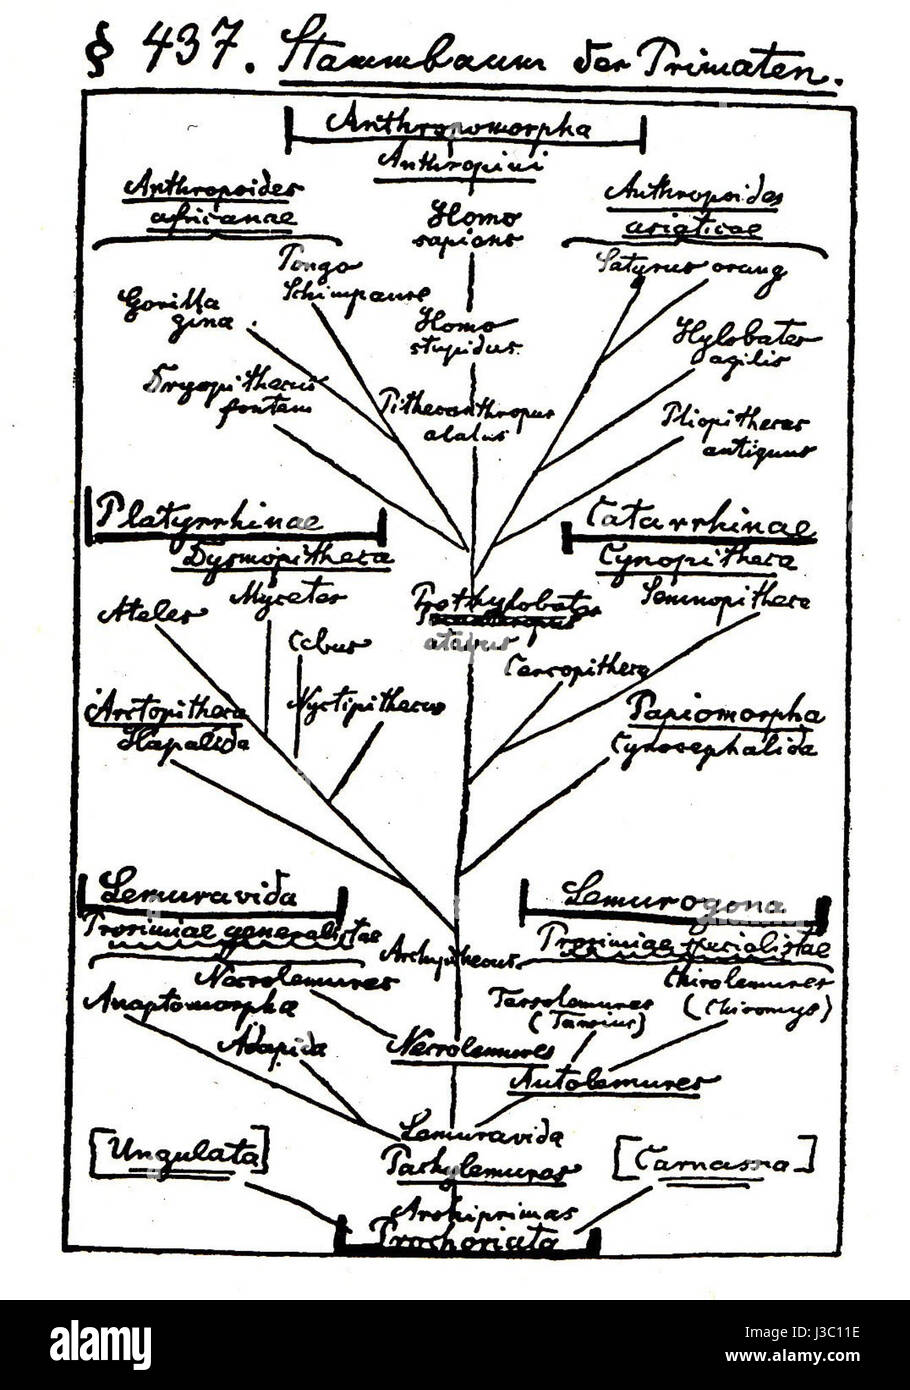 § 437. Stammbaum der Primaten.
Anthropomorpha
Anthropini
Anthropoides
africanae
Anthropoides
asiaticae
Homo
sapiens
Pongo
Schimpanse
Satyrus orang
Gorilla
gina.
Homo
stupidus.
Hylobates
agilis
Dryopithecus
fontani
Pithecanthropus
alalus
Pliopithecus
antiquus
Platyrrhinae
Catarrhinae
Dysmopitheca
Cynopitheca
Ateles
Mycetes
Prothylobates
atavus
Semnopitheca
Cebus
Cercopitheca
Arctopitheca
Hapalida
Nyctipithecus
Papiomorpha
Cynocephalida
Lemuravida
Lemurogona
Prosimiae generalistae
Archipithecus
Prosimiae specialistae
Necrolemures
Anaptomorpha
Tarsolemures
(Tarsius)
Chirolemures
(Chiromys)
Adapida
Necrolemures
Autolemures
Lemuravida
Pachylemures
[Ungulata]
[Carnassia]
Archiprimas
Prochoriata
alamy
Image ID: J3C11E
www.alamy.com